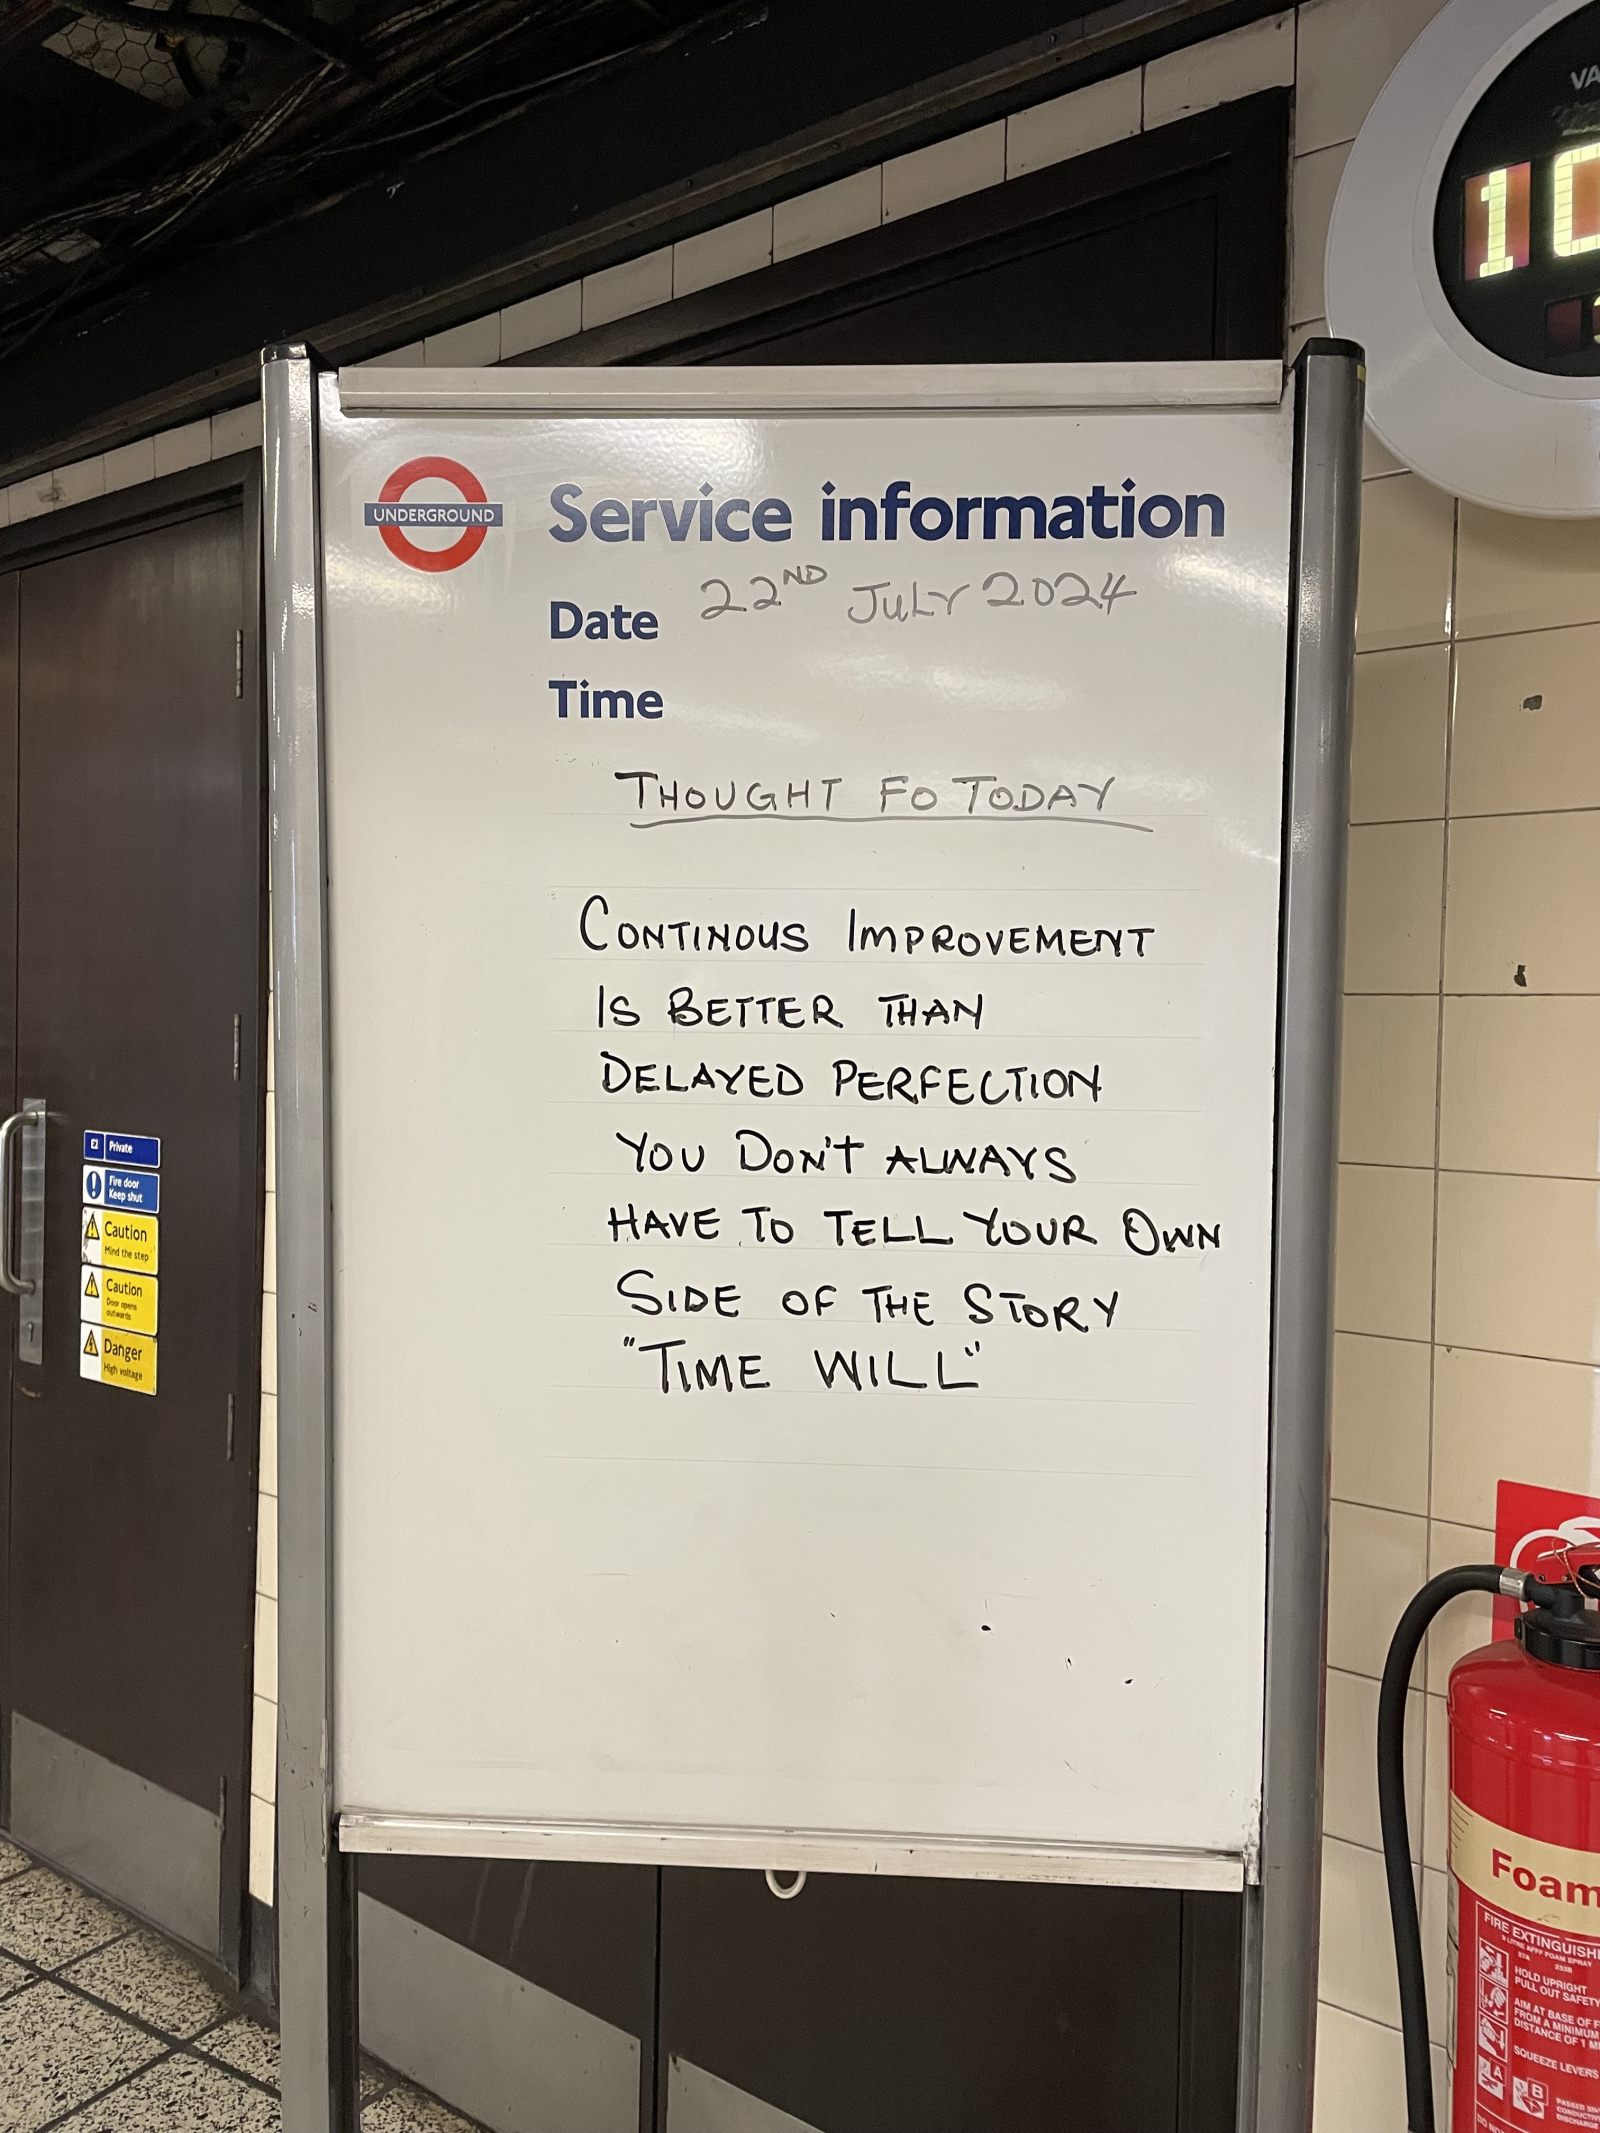 UNDERGROUND
Service information
Date 22ND JULY 2024
Time
THOUGHT FO TODAY
CONTINOUS IMPROVEMENT
IS BETTER THAN
DELAYED PERFECTION
YOU DON'T ALWAYS
HAVE TO TELL YOUR OWN
SIDE OF THE STORY
"TIME WILL"
Private
Fire door
Keep shut
Caution
Mind the step
Caution
Door opens
outwards
Danger
High voltage
VA
Foam
FIRE EXTINGUISH
9 LITRE AFFF FOAM SPRAY
27A 233B
HOLD UPRIGHT
PULL OUT SAFETY
AIM AT BASE OF F
FROM A MINIMUM
DISTANCE OF 1 M
SQUEEZE LEVERS
A
B